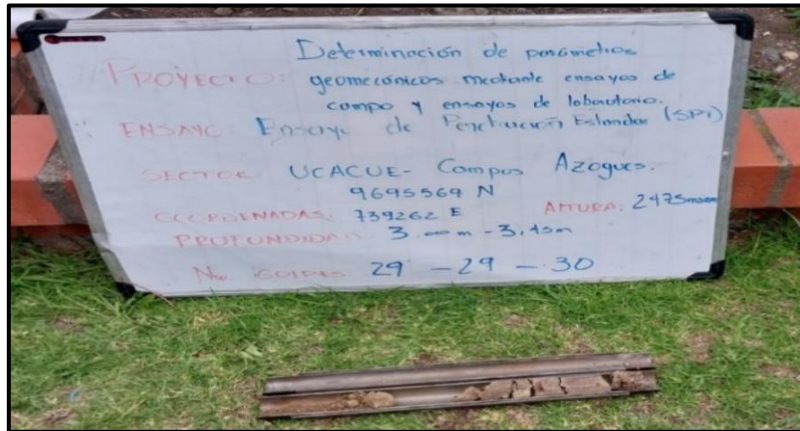 PROYECTO: Determinación de parámetros
geomecánicos mediante ensayos de
campo y ensayos de laboratorio.
ENSAYO: Ensayo de Penetración Estandar (SPT)
SECTOR UCACUE- Campus Azogues.
9695569 N
COORDENADAS: 739262 E ALTURA: 2475msnm
PROFUNDIDAD: 3.00m - 3,45m
No. GOLPES 29 - 29 - 30